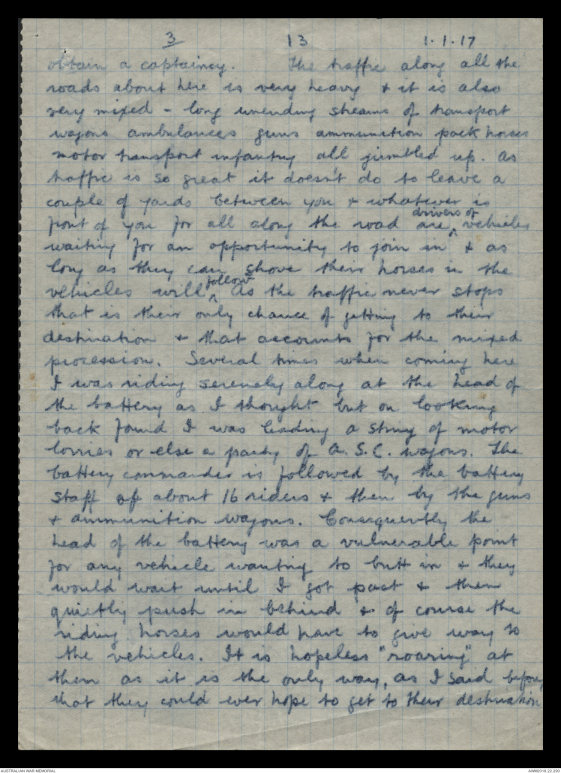 3 13 1.1.17
obtain a captaincy. The traffic along all the
roads about here is very heavy & it is also
very mixed - long unending streams of transport
wagons ambulances guns ammunition pack horses
motor transport infantry all jumbled up. As
traffic is so great it doesn't do to leave a
couple of yards between you & whatever is
front of you for all along the road are drivers of vehicles
waiting for an opportunity to join in & as
long as they can shove their horses in the
vehicles will follow. As the traffic never stops
that is their only chance of getting to their
destination & that accounts for the mixed
procession. Several times when coming here
I was riding serenely along at the head of
the battery as I thought but on looking
back found I was leading a string of motor
lorries or else a party of A.S.C. wagons. The
battery commander is followed by the battery
staff of about 16 riders & then by the guns
& ammunition wagons. Consequently the
head of the battery was a vulnerable point
for any vehicle wanting to butt in & they
would wait until I got past & then
quietly push in behind & of course the
riding horses would have to give way to
the vehicles. It is hopeless "roaring" at
them as it is the only way, as I said before,
that they could ever hope to get to their destination
AUSTRALIAN WAR MEMORIAL